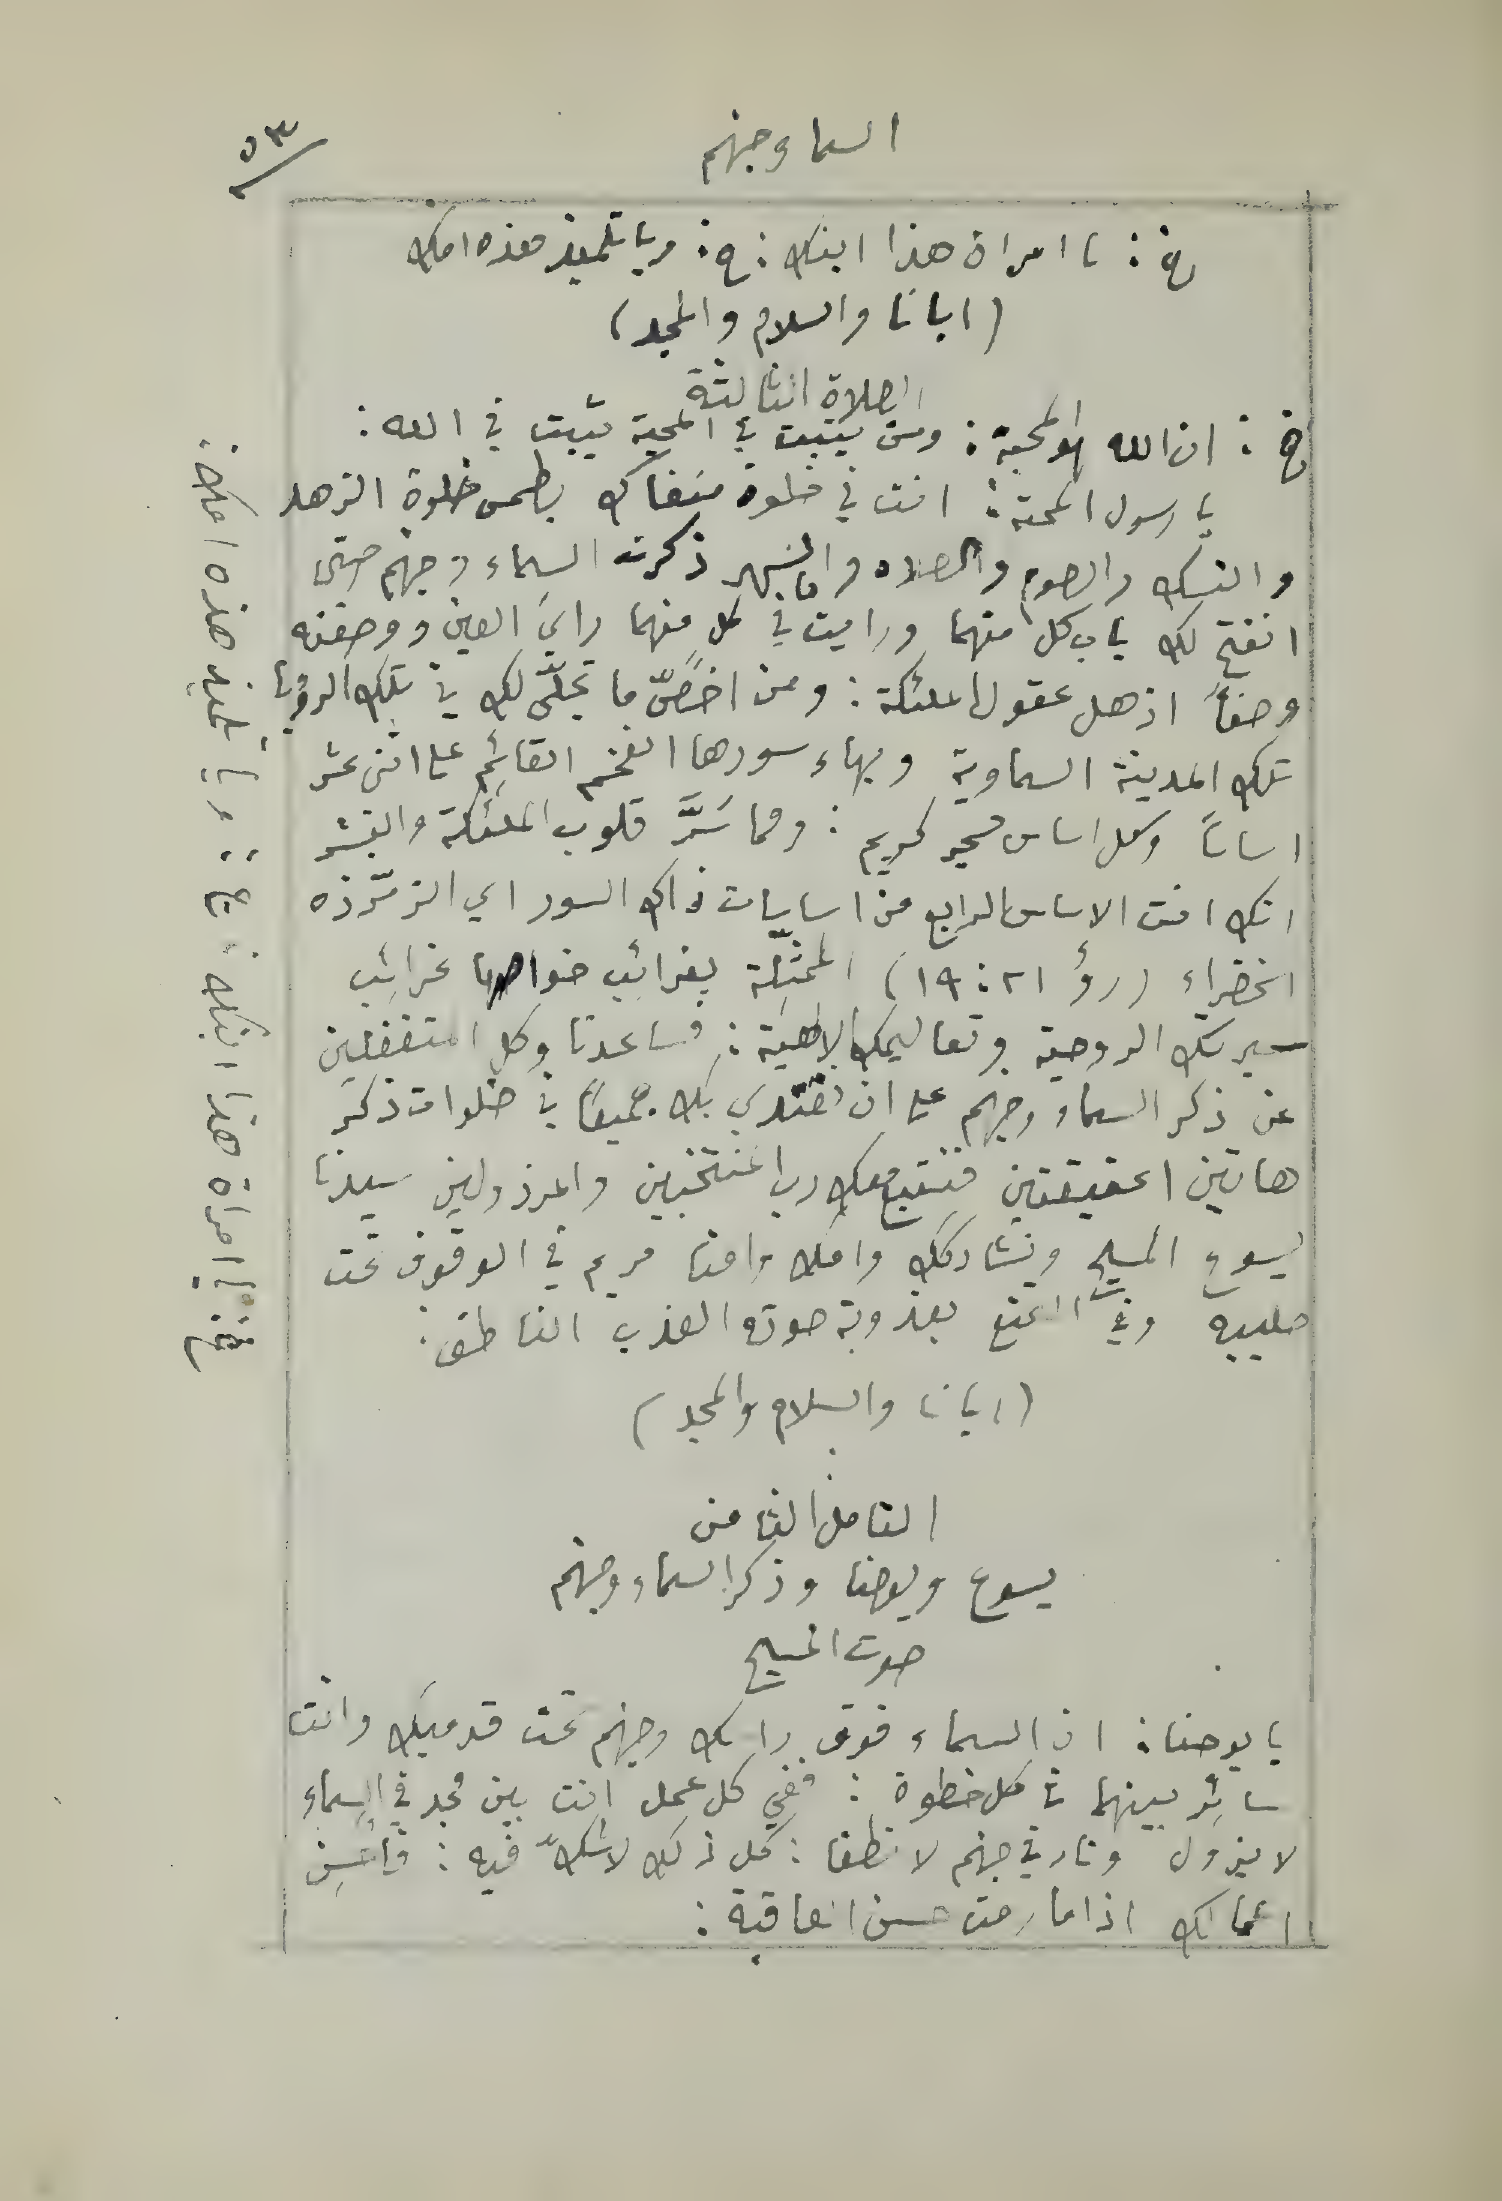 السما وجهنم
٥٣
خ: يا امراة هذا ابنك: ج: ويا تلميذ هذه امك
(ابانا والسلام والمجد)
الصلاة الثالثة
خ: ان الله لهو المحبة: ومن يثبت في المحبة يثبت في الله:
يا رسول المحبة: انت في خلوة منفاك بطمس خلوة الزهد
والنسك والصوم والصلاه والسهر ذكرت السماء وجهنم حتى
انفتح لك باب كل منهما ورايت في كل منهما راي العين ووصفته
وصفاً اذهل عقول الملئكة: ومن اخصّ ما تجلّى لك في تلك الرؤيا
تلك المدينة السماوية وبهاء سورها الفخم القائم على اثنى عشر
اساساً وكل اساس حجر كريم: ومما سَرَّ قلوب الملئكة والبشر
انك انت الاساس الرابع من اساسات ذاك السور اي الزمّرذه
الخضراء (رؤ ٢١: ١٩) الممثّلة بغرائب خواصها غرائب
سيرتك الروحية وتعاليمك الالهية: فساعدنا وكل المتغفلين
عن ذكر السماء وجهنم على ان نقتدي بك جميعاً في خلوات ذكر
هاتين الحقيقتين فنتبع معك رب المنتخبين والمرذولين سيدنا
يسوع المسيح ونشاركك وامك وامنا مريم في الوقوف تحت
صليبه وفي التمتع بعذوبة صوته العذب الناطق.
(ابانا والسلام والمجد)
التامل الثامن
يسوع ويوحنا وذكر السماء وجهنم
صوت المسيح
يا يوحنا: ان السماء فوق راسك وجهنم تحت قدميك وانت
سائر بينهما في كل خطوة: ففي كل عمل انت بين مجد في السماء
لا يزول ونار في جهنم لا تطفا: كل ذلك لا شكّ فيه: فاحسِن
اعمالك اذا ما رمت حسن العاقبة:
خ: يا امراة هذا ابنك: ج: ويا تلميذ هذه امك: